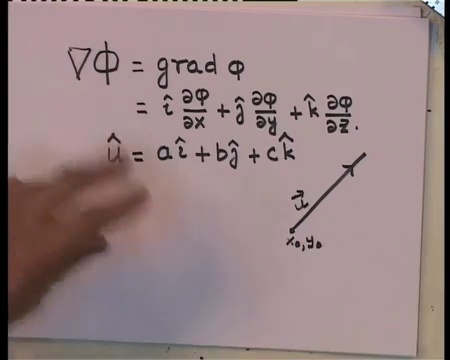 ∇Φ = grad φ
= î ∂φ/∂x + ĵ ∂φ/∂y + k̂ ∂φ/∂z.
û = aî + bĵ + ck̂
u⃗
x₀, y₀